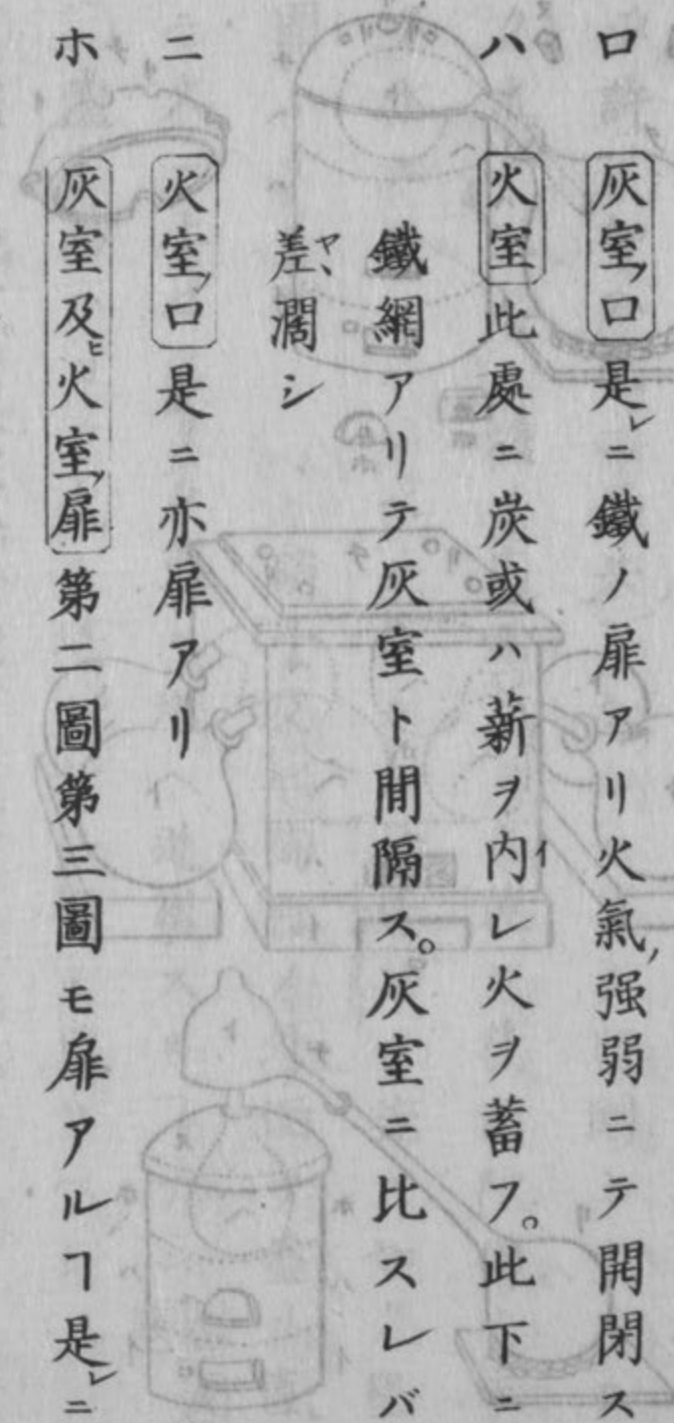 ロ 灰室ノ口是レニ鐵ノ扉アリ火氣ノ强弱ニテ開閉ス
ハ 火室此處ニ炭或ハ薪ヲ内イレ火ヲ蓄フ。此下ニ
鐵網アリテ灰室ト間隔ス。灰室ニ比スレバ
差ヤヽ濶シ
ニ 火室ノ口是ニ亦扉アリ
ホ 灰室及ヒ火室ノ扉第二圖第三圖モ扉アルヿ是レニ